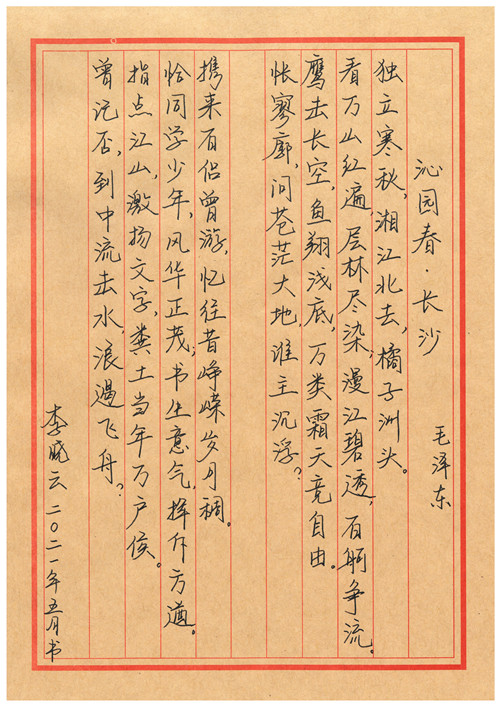 沁园春·长沙
毛泽东
独立寒秋，湘江北去，橘子洲头。
看万山红遍，层林尽染，漫江碧透，百舸争流。
鹰击长空，鱼翔浅底，万类霜天竞自由。
怅寥廓，问苍茫大地，谁主沉浮？
携来百侣曾游，忆往昔峥嵘岁月稠。
恰同学少年，风华正茂，书生意气，挥斥方遒。
指点江山，激扬文字，粪土当年万户侯。
曾记否，到中流击水，浪遏飞舟？
李晓云二〇二一年五月书